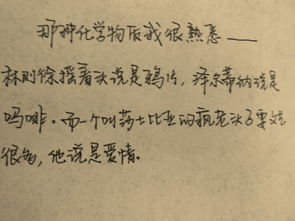 那种化学物质我很熟悉——
林则徐摇着头说是鸦片，泽尔蒂纳说是
吗啡。而一个叫莎士比亚的疯老头子要
很多，他说是爱情。